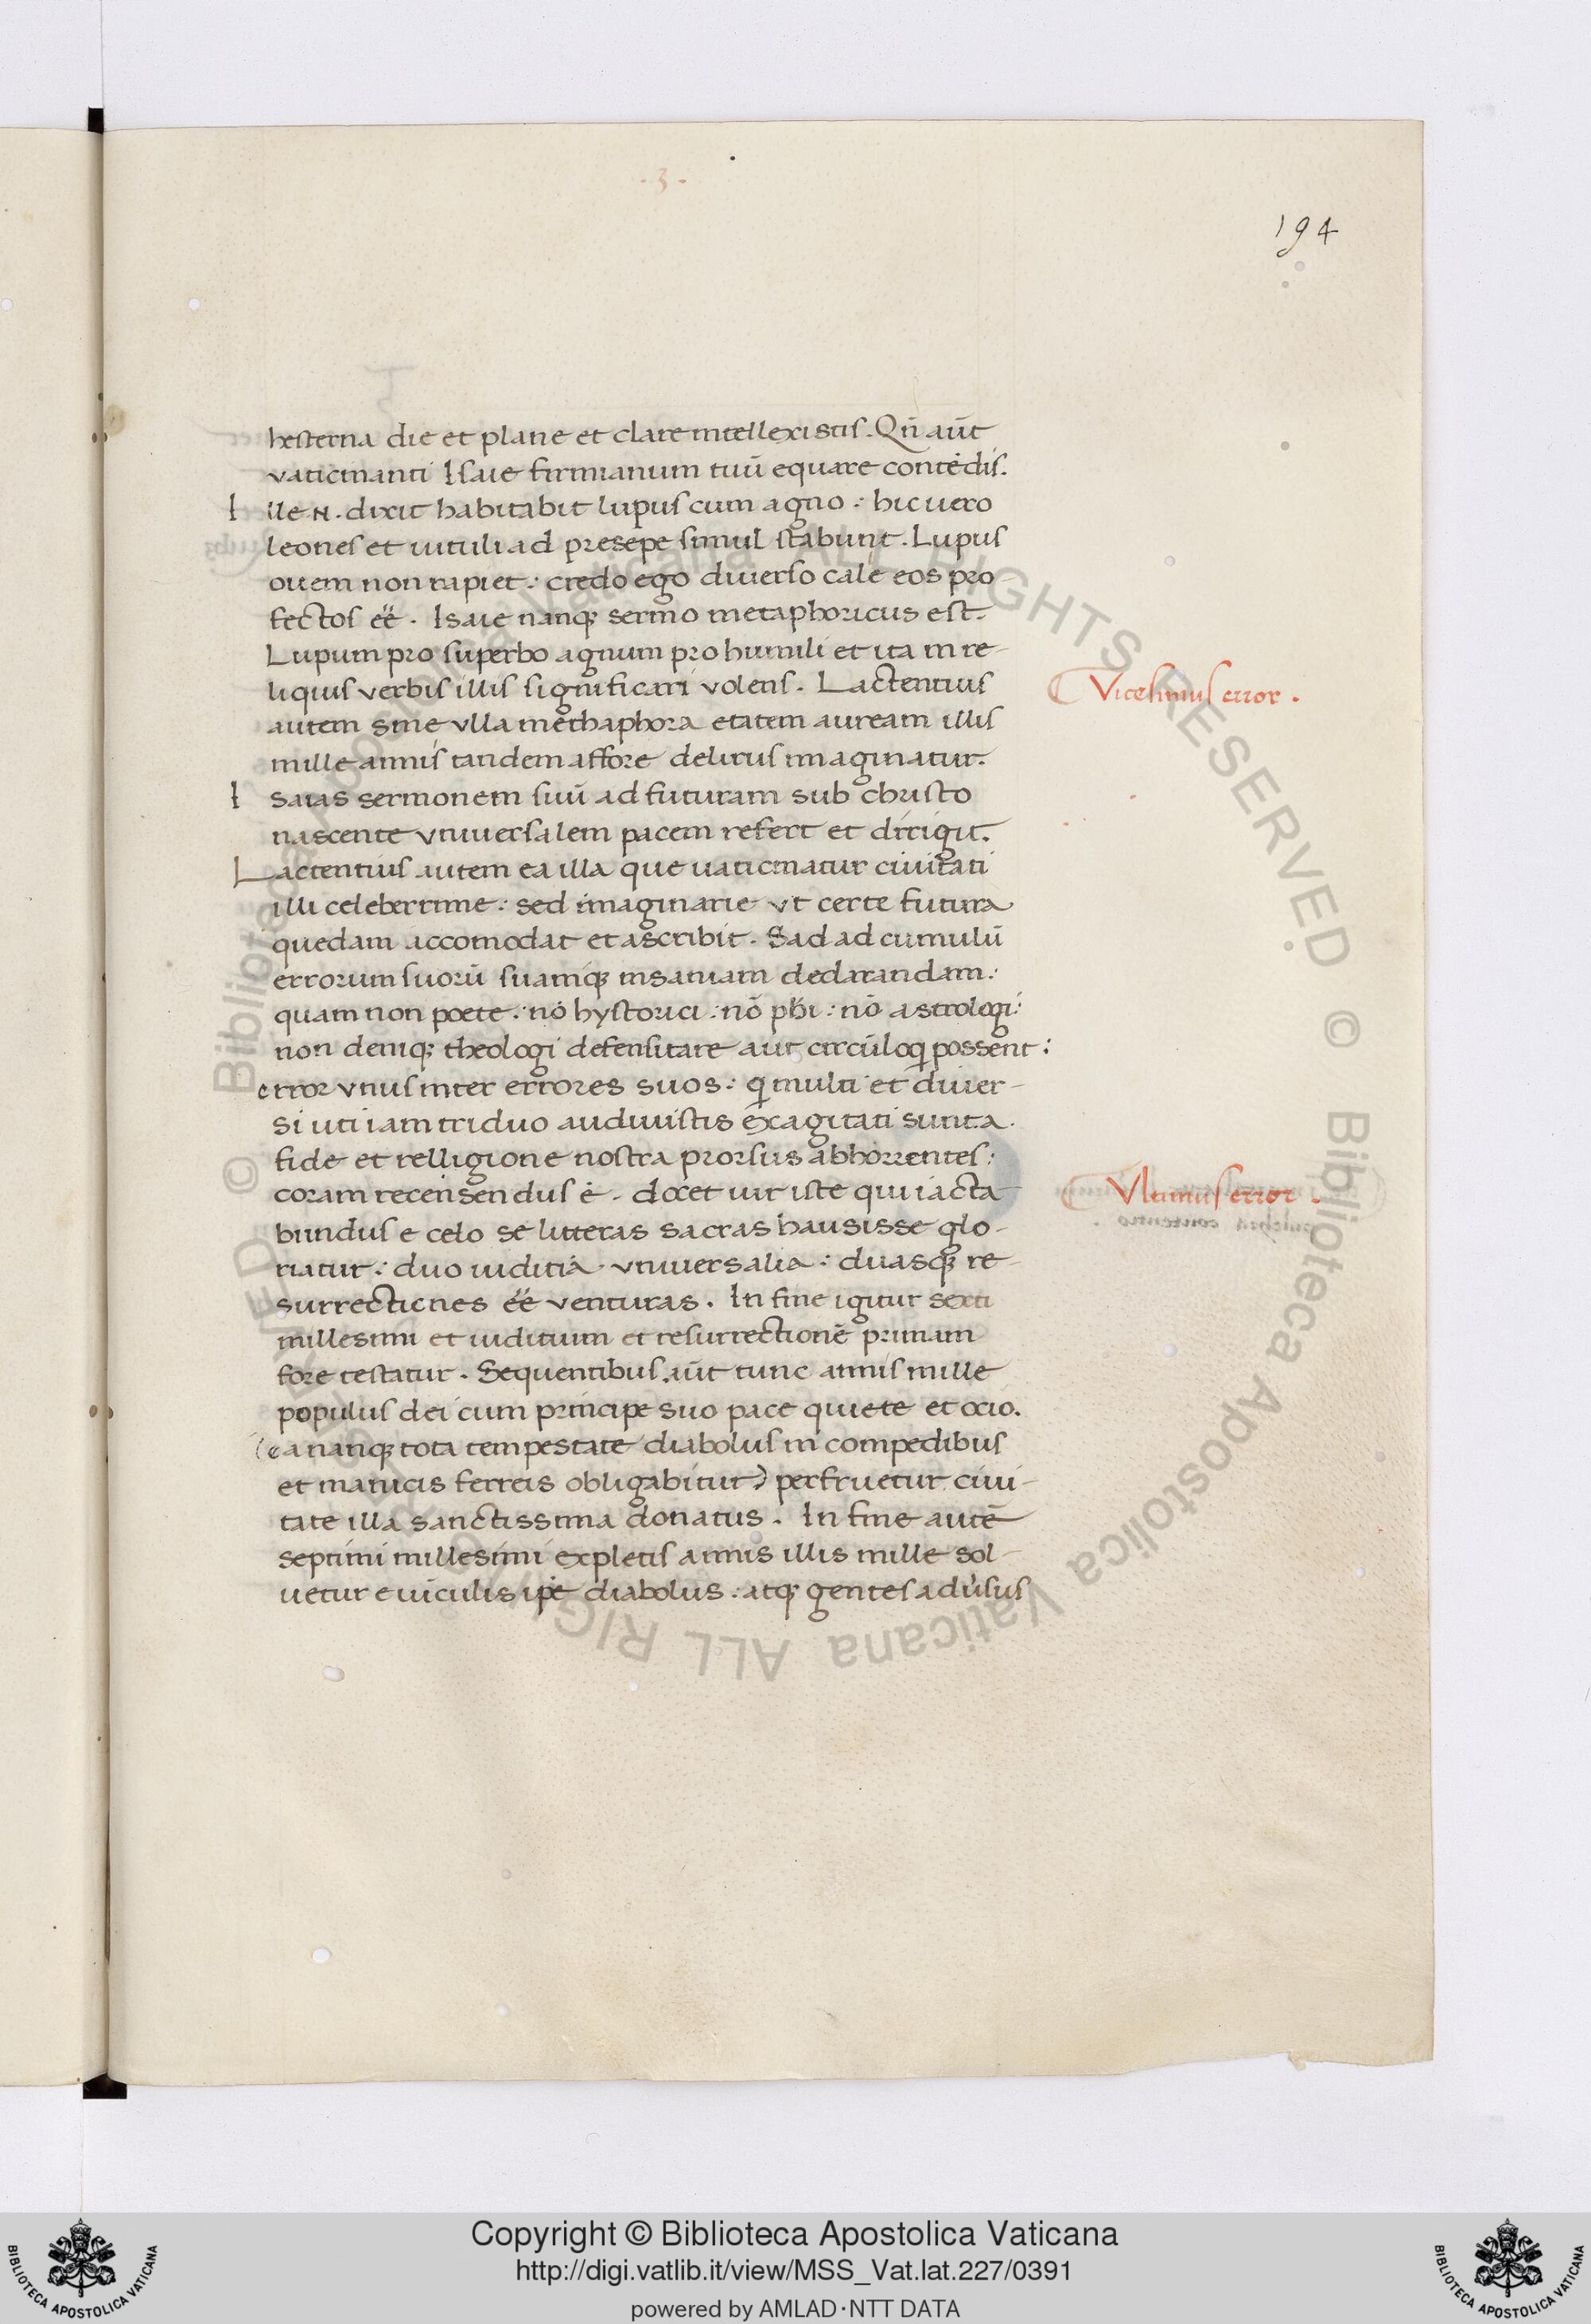 · 3 ·
194
hesterna die et plane et clare intellexistis. Qñ aũt
vaticinanti Isaie firmianum tuũ equare contẽdis.
Ille .N. dixit habitabit lupus cum agno: hic uero
leones et uituli ad presepe simul stabunt. Lupus
ouem non rapiet: credo ego diuerso cale eos pro
fectos eẽ. Isaie nanqȝ sermo metaphoricus est.
Lupum pro superbo agnum pro humili et ita in re-
liquis verbis illis significari volens. Lactentius
autem sine vlla methaphora etatem auream illis
mille annis tandem affore delirus imaginatur.
Isaias sermonem suũ ad futuram sub christo
nascente vniuersalem pacem refert et dirigit.
Lactentius autem ea illa que uaticinatur ciuitati
illi celeberrime: sed imaginarie vt certe futura
quedam accomodat et ascribit. Sad ad cumulũ
errorum suorũ suamqȝ insaniam declarandam:
quam non poete: nõ hystorici: nõ phi: nõ astrologi:
non deniqȝ theologi defensitare aut circũloqi possent:
error vnus inter errores suos: qi multi et diuer-
si uti iam triduo audiuistis exagitati sunt a
fide et relligione nostra prorsus abhorrentes:
coram recensendus ẽ. docet uir iste qui iacta
bundus e celo se litteras sacras hausisse glo-
riatur: duo iuditia vniuersalia: duasqȝ re-
surrectiones eẽ venturas. In fine igitur sexti
millesimi et iuditium et resurrectionẽ primam
fore testatur. Sequentibus aũt tunc annis mille
populus dei cum principe suo pace quiete et ocio.
(ea nanqȝ tota tempestate diabolus in compedibus
et manicis ferreis obligabitur) perfruetur ciui-
tate illa sanctissima donatus. In fine autẽ
septimi millesimi expletis annis illis mille sol-
uetur e uĩculis ipẽ diabolus: atqȝ gentes aduersus
Vicesimus error.
Vltimus error.
© Biblioteca Apostolica Vaticana ALL RIGHTS RESERVED © Biblioteca Apostolica Vaticana ALL RIGHTS RESERVED
Copyright © Biblioteca Apostolica Vaticana
http://digi.vatlib.it/view/MSS_Vat.lat.227/0391
powered by AMLAD·NTT DATA
BIBLIOTECA APOSTOLICA VATICANA
BIBLIOTECA APOSTOLICA VATICANA